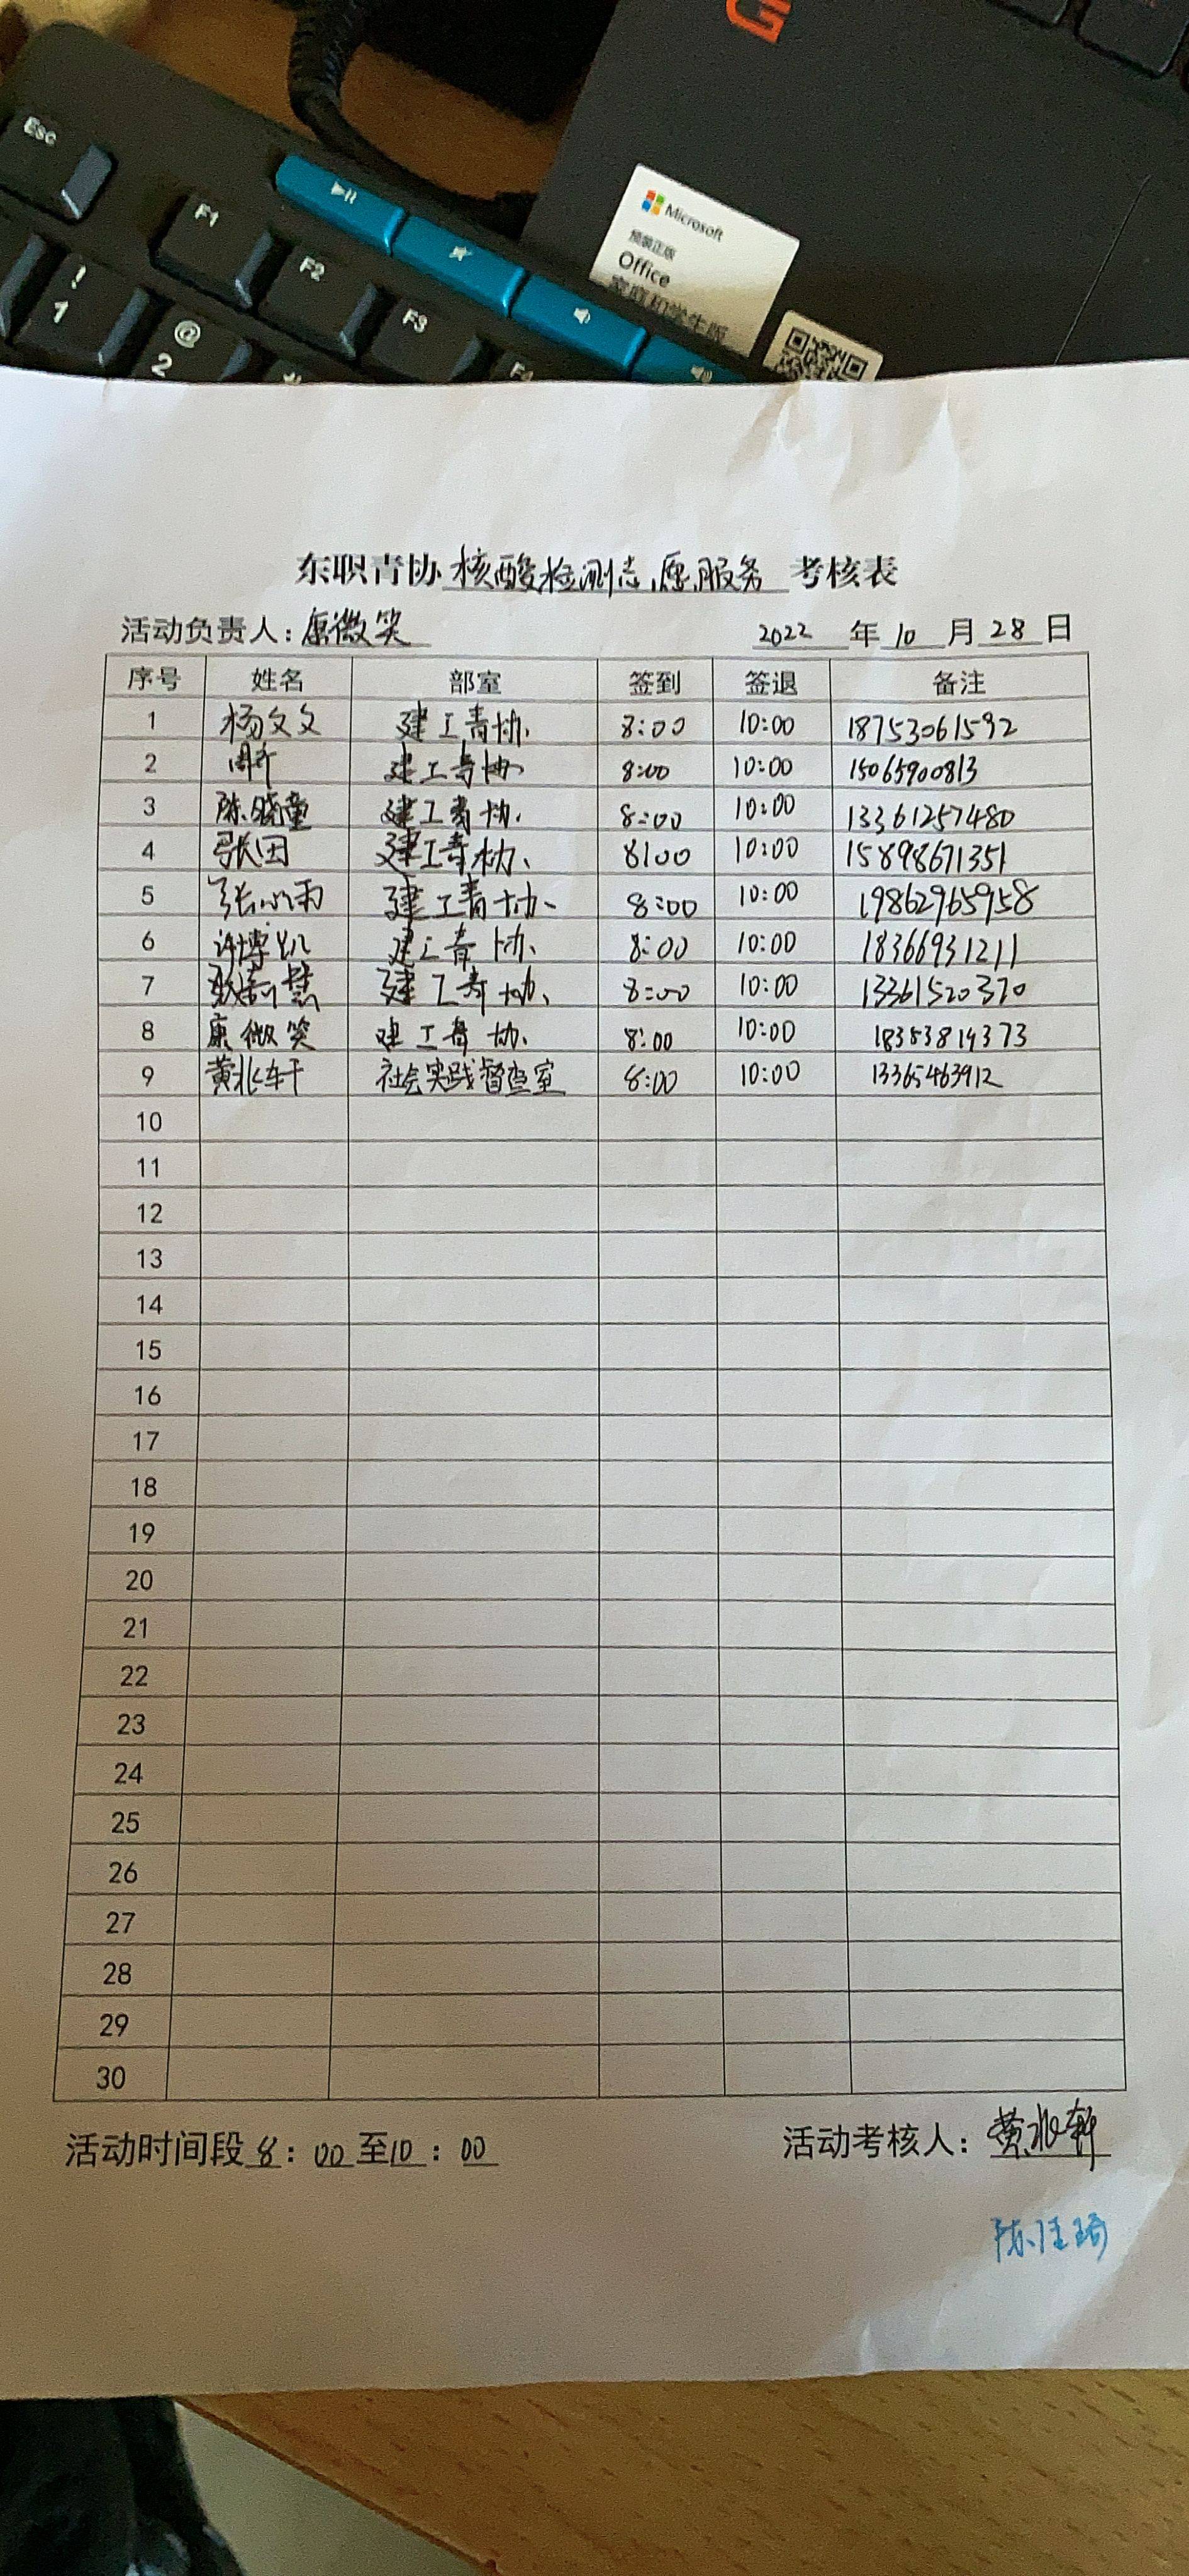 Esc
F1
F2
F3
F4
!
1
@
2
G
Microsoft
预装正版
Office
家庭和学生版
东职青协 核酸检测志愿服务 考核表
活动负责人: 康微笑 2022 年 10 月 28 日
序号 姓名 部室 签到 签退 备注
1 杨文文 建工青协 8:00 10:00 18753061592
2 周昕 建工青协 8:00 10:00 15065900813
3 陈晓童 建工青协 8:00 10:00 13361257480
4 张田 建工青协 8:00 10:00 15898671351
5 张心雨 建工青协 8:00 10:00 19862965958
6 许博凯 建工青协 8:00 10:00 18366931211
7 建工青协 8:00 10:00 13361520370
8 康微笑 建工青协 8:00 10:00 18353819373
9 黄兆轩 社会实践督查室 8:00 10:00 13365463912
10
11
12
13
14
15
16
17
18
19
20
21
22
23
24
25
26
27
28
29
30
活动时间段 8: 00 至 10 : 00 活动考核人: 黄兆轩
陈佳琦